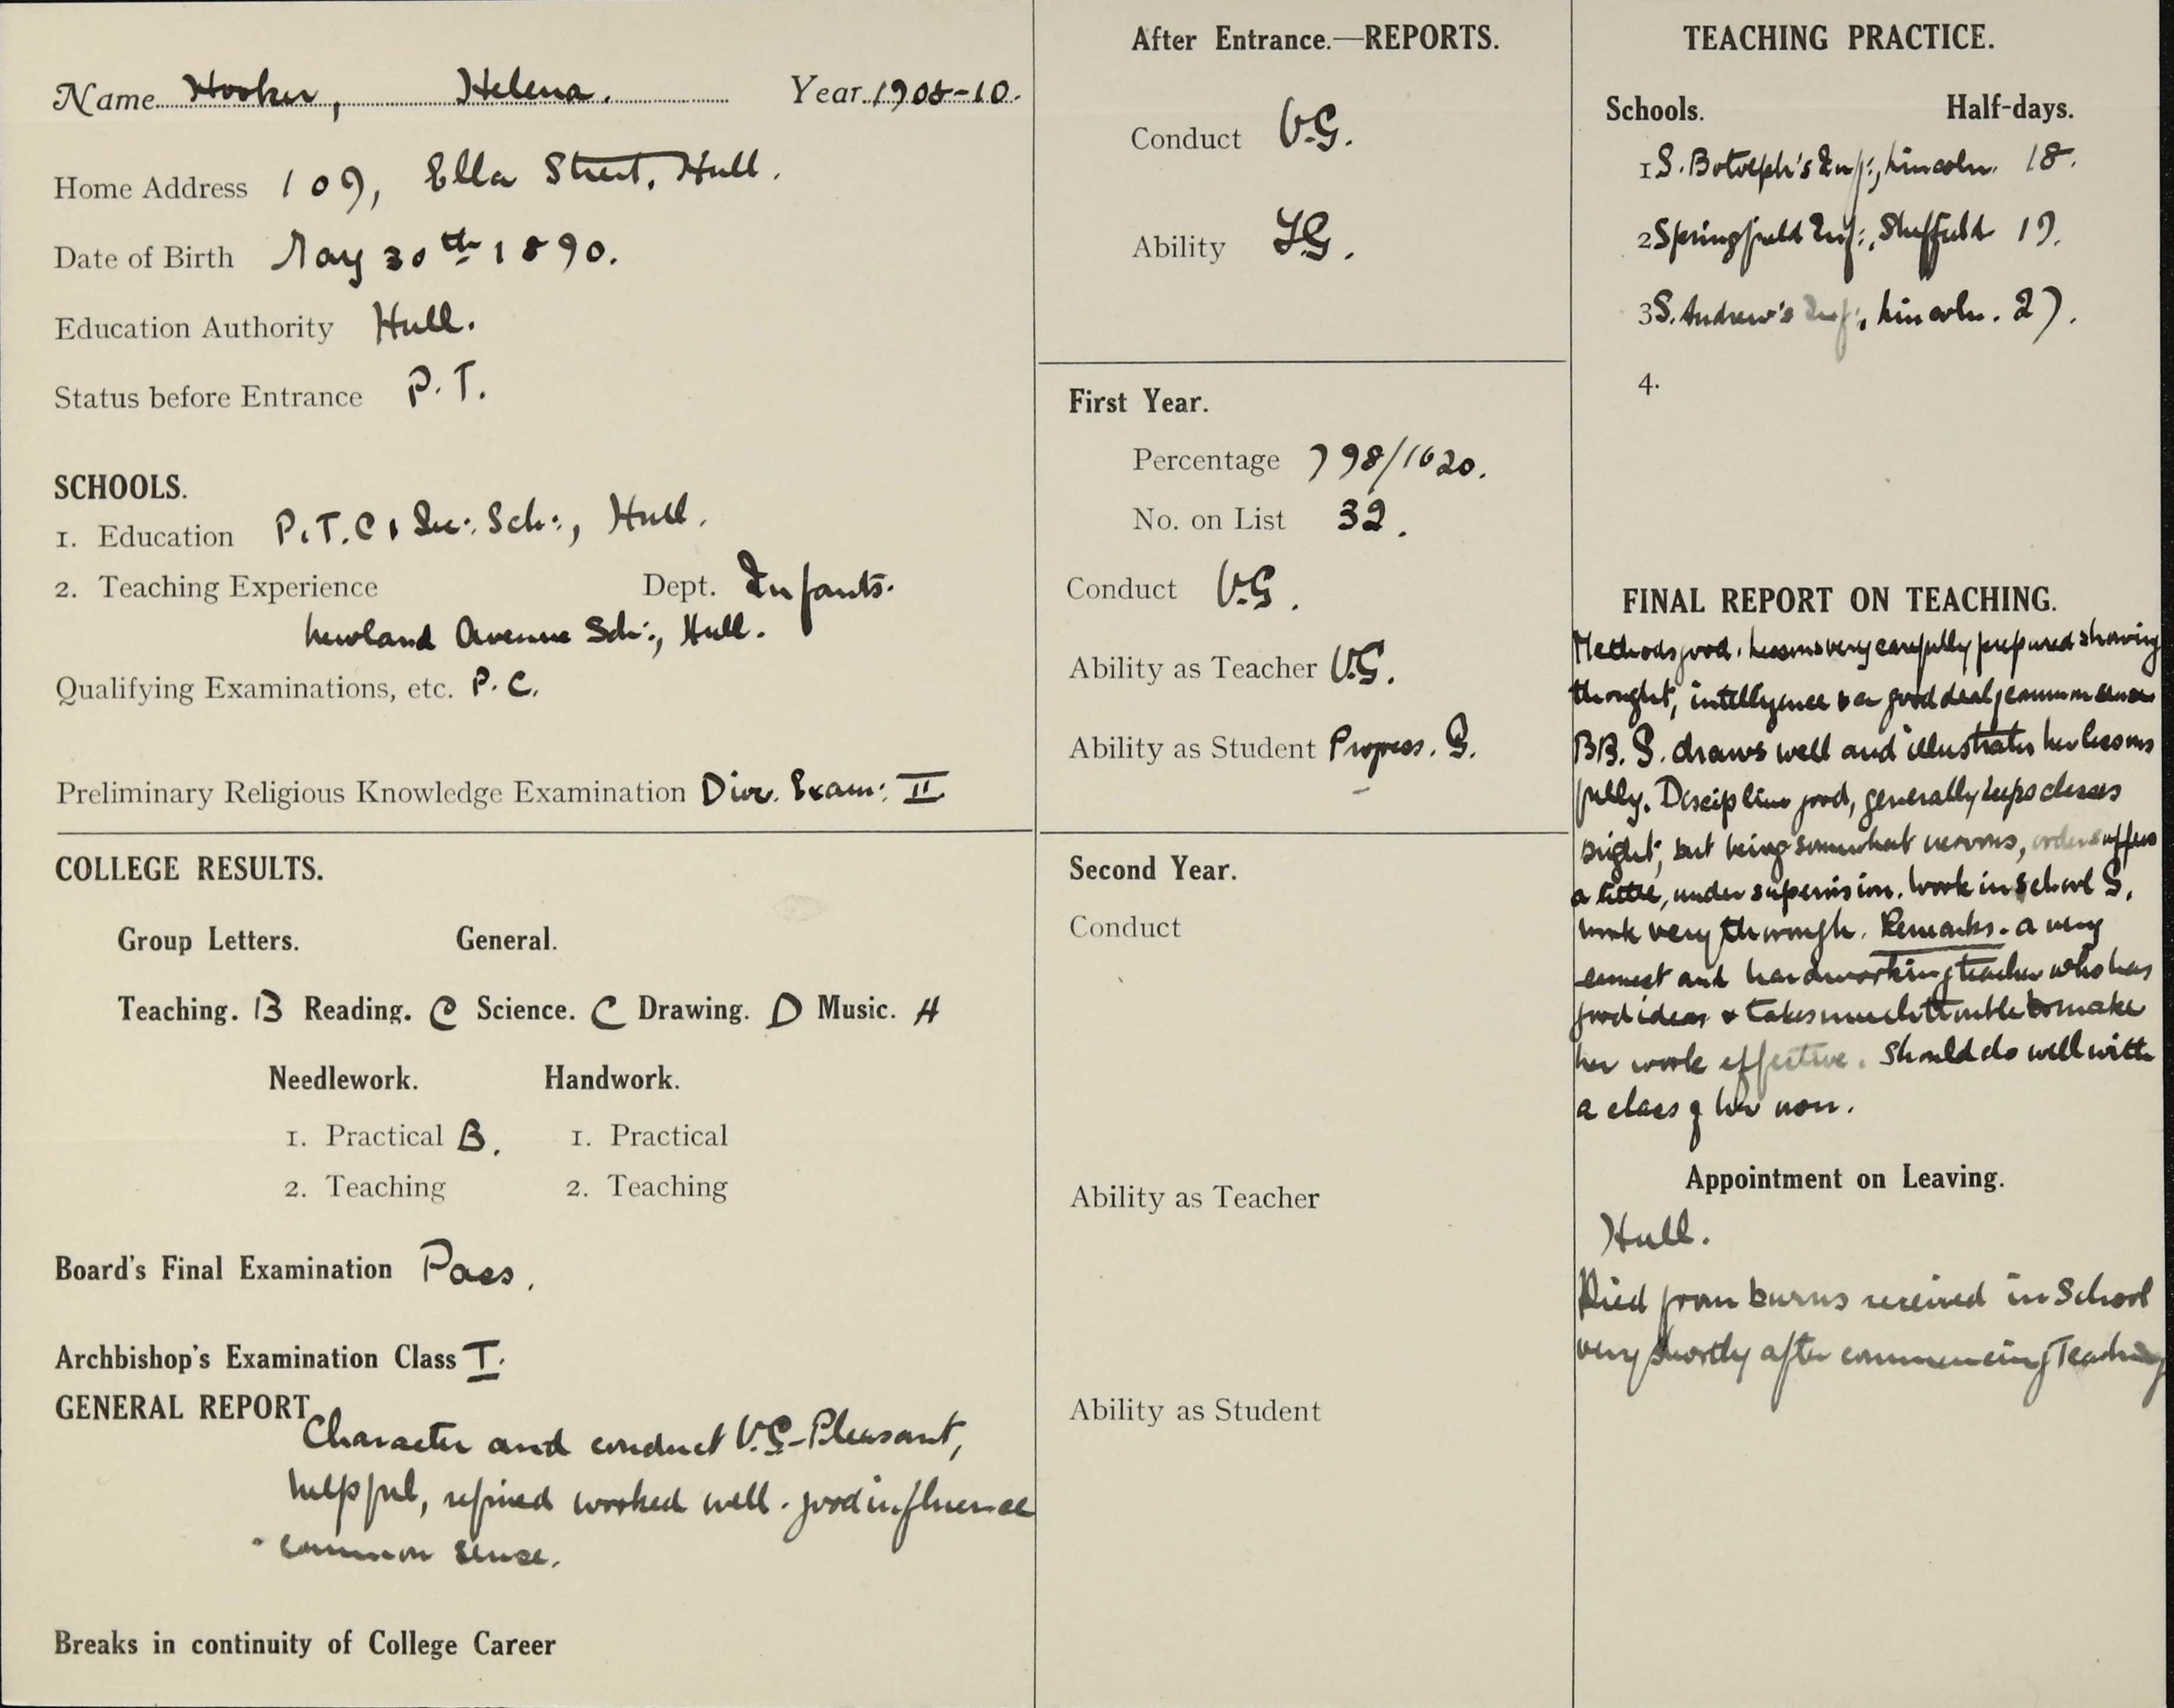 Name Hooker, Helena. Year 1908-10.
Home Address 109, Ella Street, Hull.
Date of Birth May 30th 1890.
Education Authority Hull.
Status before Entrance P.T.
SCHOOLS.
1. Education P.T.C. Sec: Sch:, Hull.
2. Teaching Experience Dept. Infants.
Newland Avenue Sch:, Hull.
Qualifying Examinations, etc. P.C.
Preliminary Religious Knowledge Examination Div. Exam: II
COLLEGE RESULTS.
Group Letters. General.
Teaching. B Reading. C Science. C Drawing. D Music. A
Needlework. Handwork.
1. Practical B. 1. Practical
2. Teaching 2. Teaching
Board's Final Examination Pass.
Archbishop's Examination Class I.
GENERAL REPORT
Character and conduct V.G-Pleasant,
helpful, refined worked well. good influence
common sense.
Breaks in continuity of College Career
After Entrance.—REPORTS.
Conduct V.G.
Ability F.G.
First Year.
Percentage 798/1020.
No. on List 32.
Conduct V.G.
Ability as Teacher V.G.
Ability as Student Progress. G.
Second Year.
Conduct
Ability as Teacher
Ability as Student
TEACHING PRACTICE.
Schools. Half-days.
1 S. Botolph's Inf:, Lincoln. 18.
2 Springfield Inf:, Sheffield 19.
3 S. Andrew's Inf:, Lincoln. 27.
4.
FINAL REPORT ON TEACHING.
Methods good. Lessons very carefully prepared showing
thought, intelligence & a good deal of common sense
BB. G. draws well and illustrates her lessons
fully. Discipline good, generally keeps classes
bright, but being somewhat nervous, order suffers
a little, under supervision. Work in school G.
Work very thorough. Remarks. a very
earnest and hardworking teacher who has
good ideas & takes much trouble to make
her work effective. Should do well with
a class of her own.
Appointment on Leaving.
Hull.
Died from burns received in School
very shortly after commencing Teaching